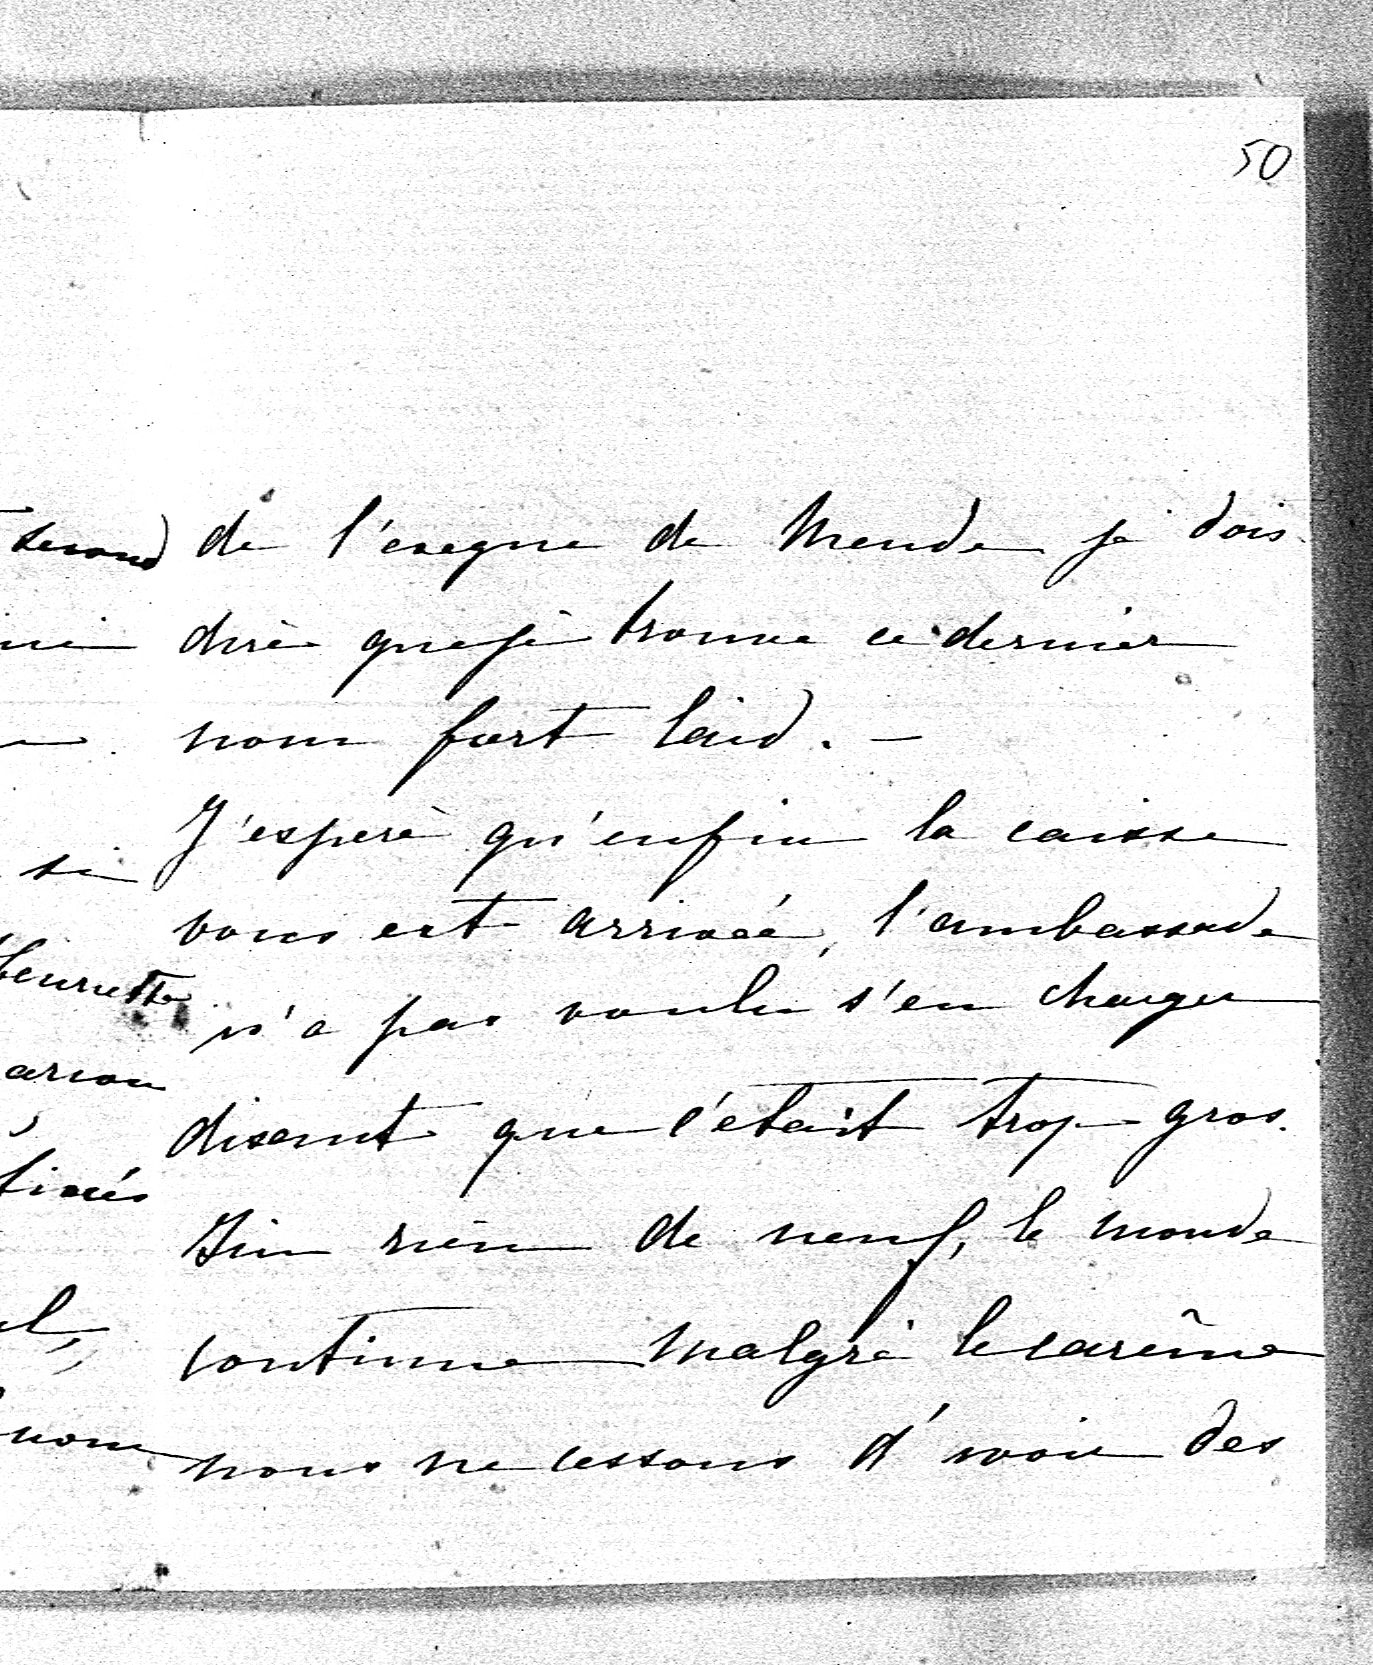 50
de l'eveque de Mende je dois
dire que je trouve ce dernier
nom fort laid. –
J'espere qu'enfin la caisse
vous est arrivée, l'ambassade
n'a pas voulu s'en charger
disant que c'était trop gros.
rien de neuf, le monde
continue malgré le carême
nous ne cessons d'avoir des
second
si
nom